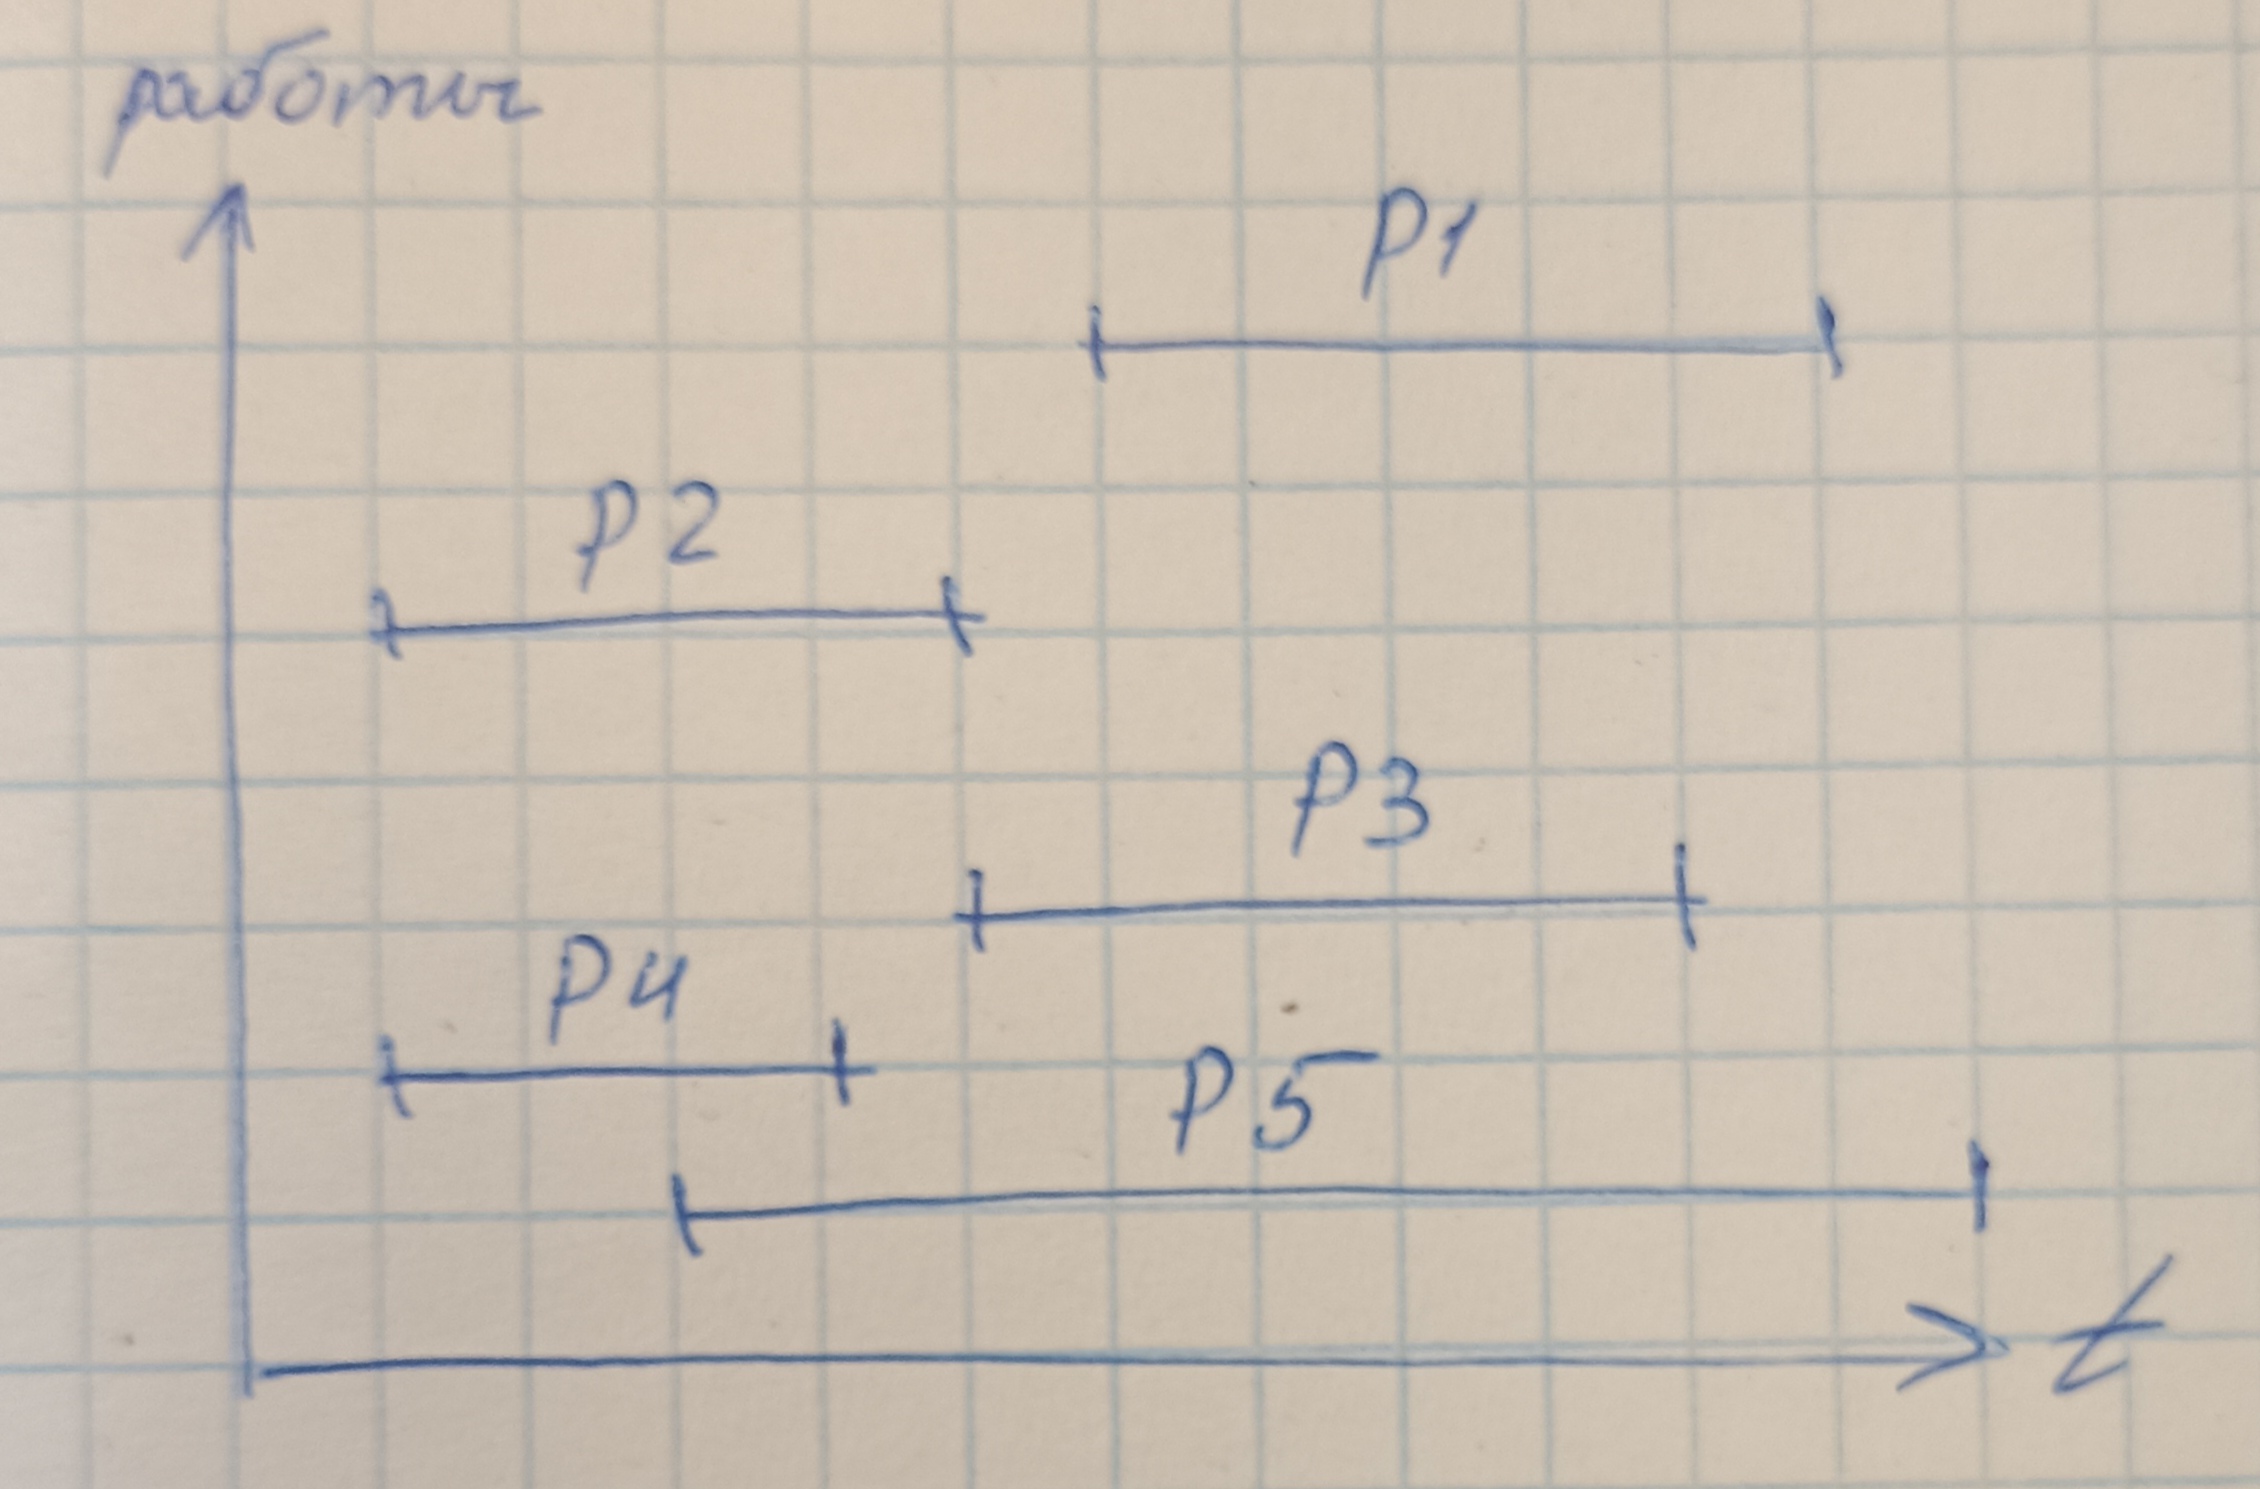 работы
р1
р2
р3
р4
р5
t